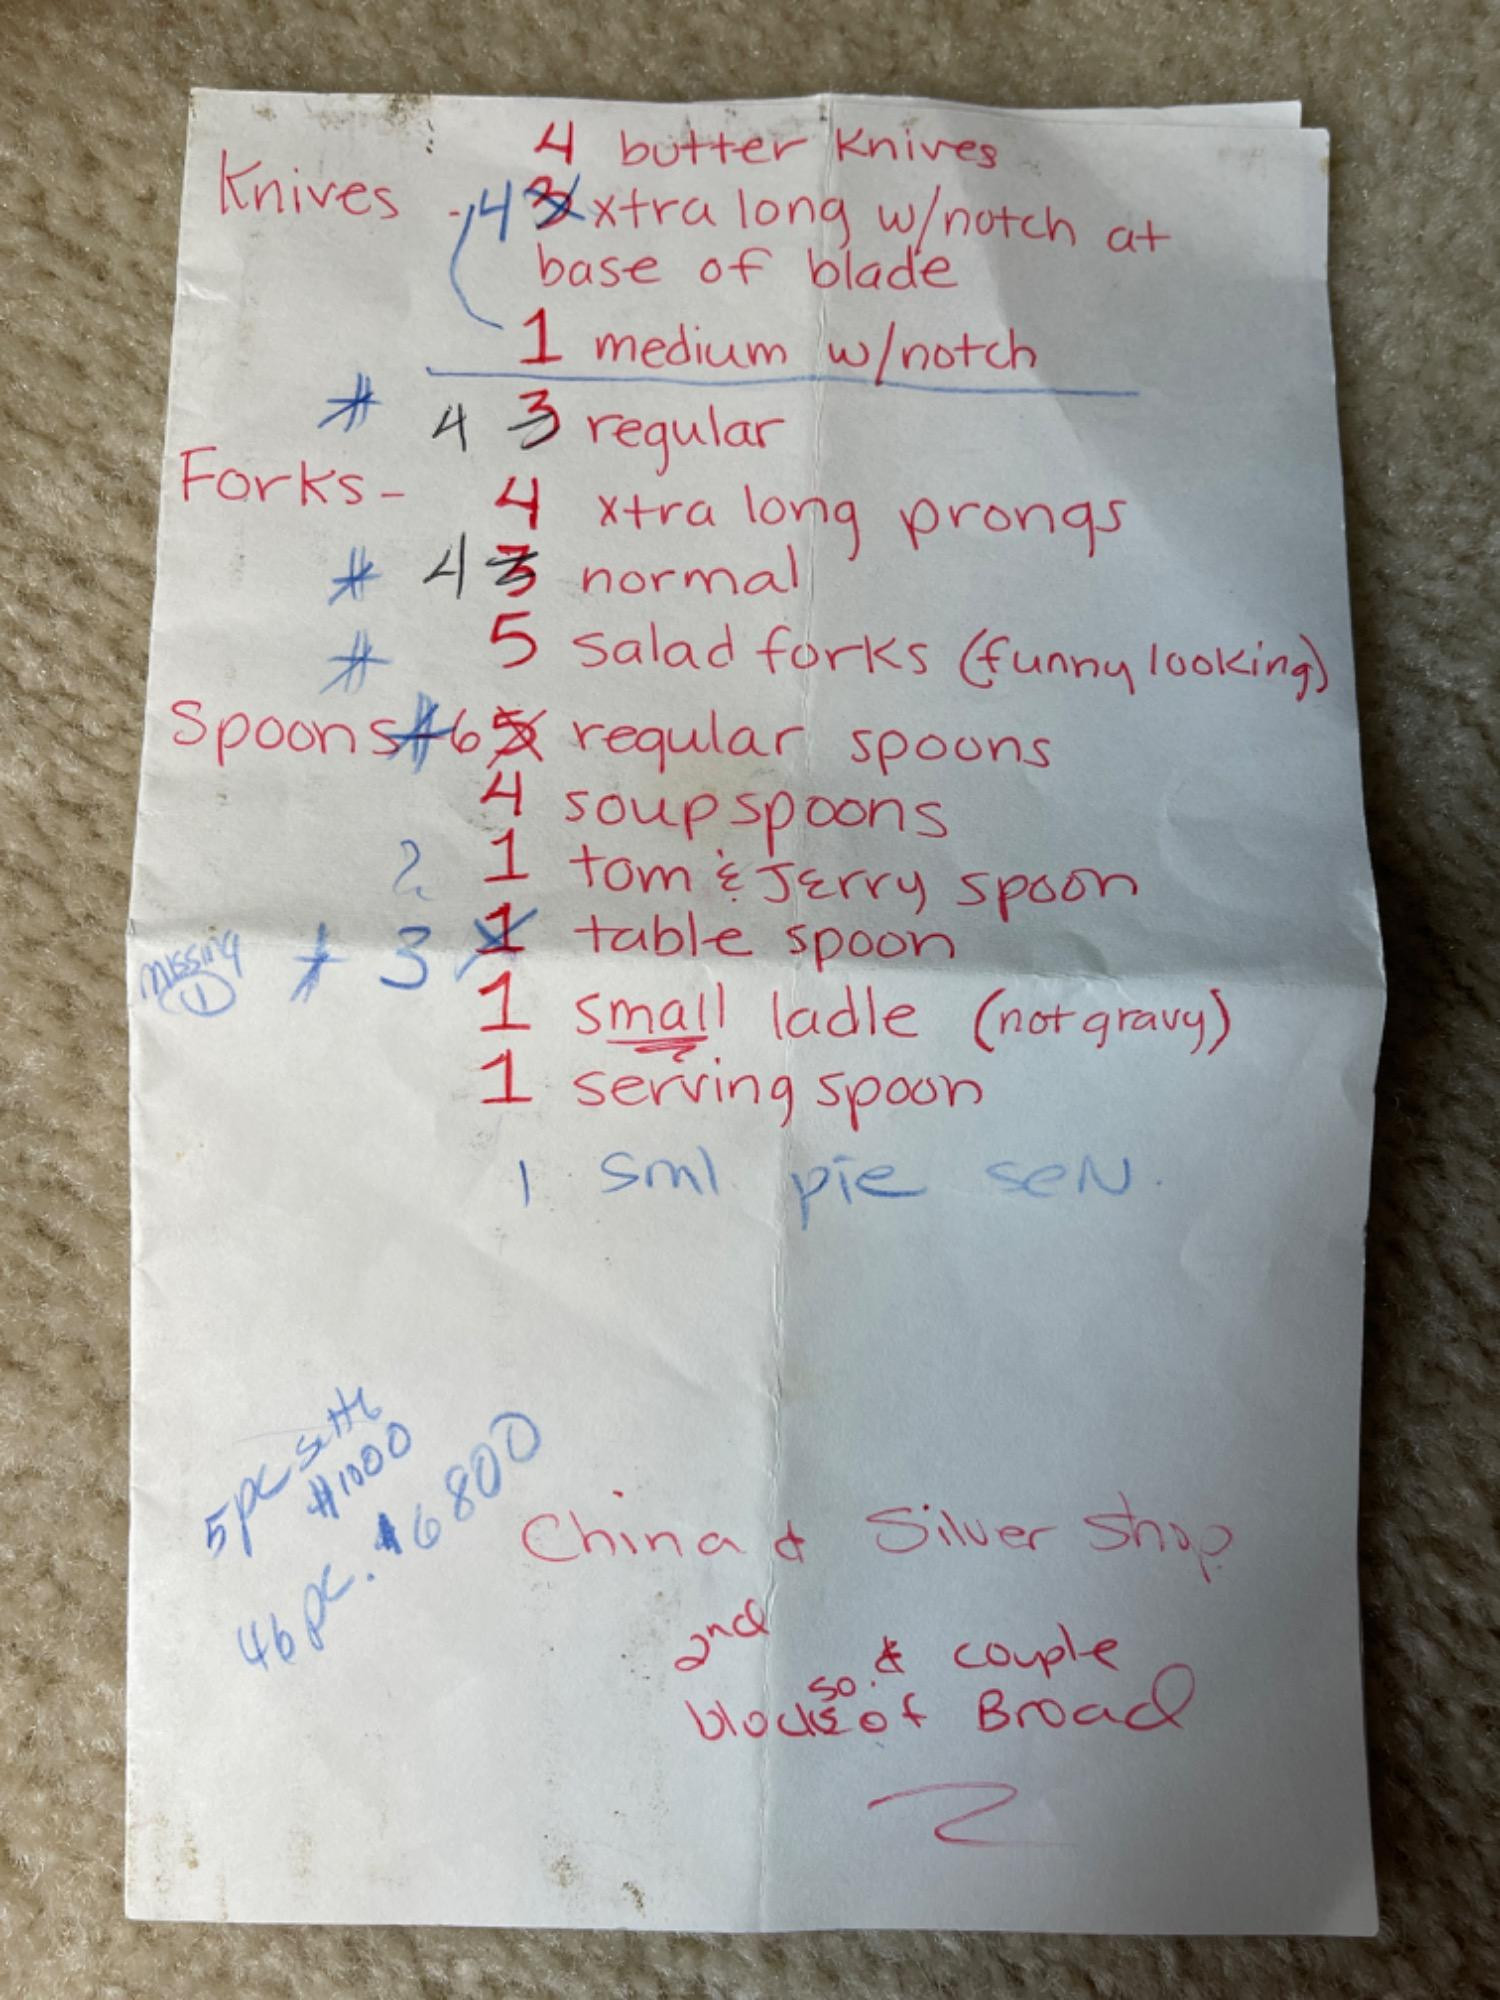 4 butter knives
Knives - 4 3 xtra long w/notch at
base of blade
1 medium w/notch
# 4 3 regular
Forks - 4 xtra long prongs
# 4 3 normal
# 5 salad forks (funny looking)
Spoons # 6 5 regular spoons
4 soup spoons
2 1 tom & Jerry spoon
missing 1 3 1 table spoon
1 small ladle (not gravy)
1 serving spoon
1 sml pie
5 pc
$1000
46 pc. $6800
China & Silver Shop
2nd & couple
blocks so. of Broad